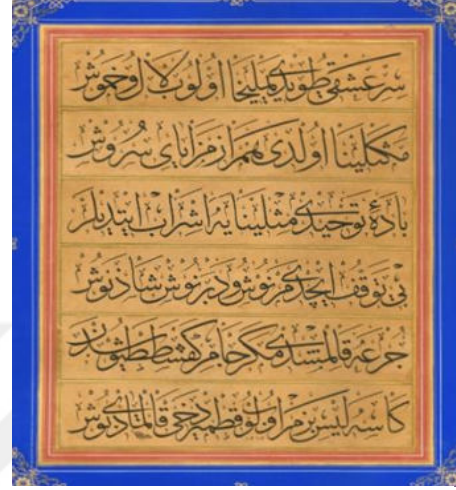 سر عشقی طویدی یملیخا اولوب لال و خموش
مکثلینا اولدی همراز مزایای سروش
بادهٔ توحیدی مثلینایه اشراب ایتدیلر
بی توقف ایچدی مرنوش و دبرنوش شاذنوش
جرعه قالمشدی مکر جام کفشططیوشدن
کاسه لیس بزم اولوب قطمیر دخی قالمادی بوش